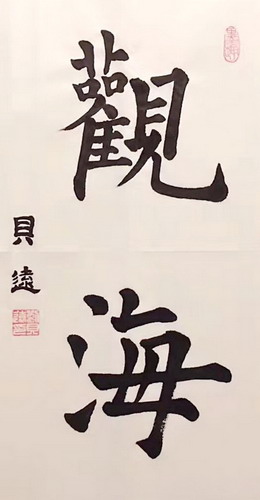 觀海
貝遠